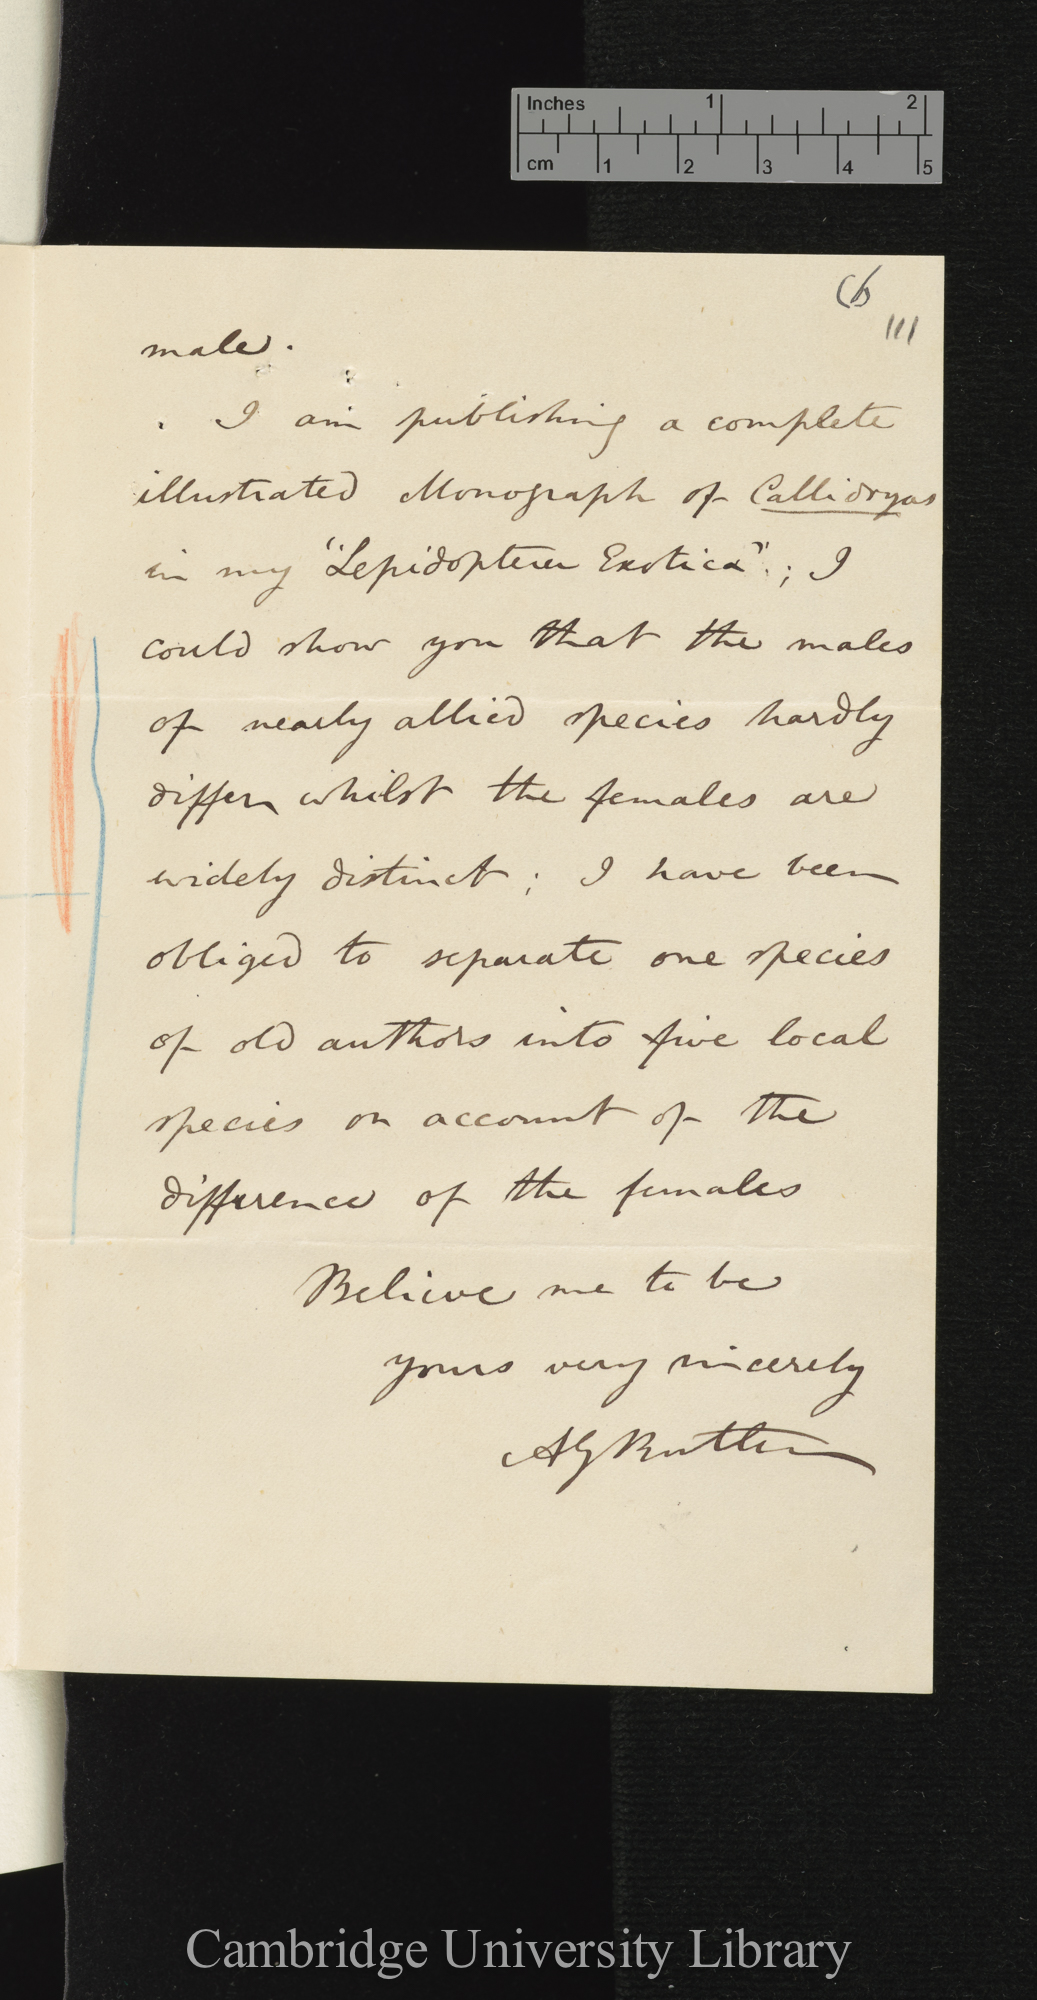 Inches 1 2
cm 1 2 3 4 5
111
male.
I am publishing a complete
illustrated Monograph of Callidryas
in my "Lepidoptera Exotica"; I
could show you that the males
of nearly allied species hardly
differ whilst the females are
widely distinct; I have been
obliged to separate one species
of old authors into five local
species on account of the
difference of the females
Believe me to be
yours very sincerely
AG Butler
Cambridge University Library